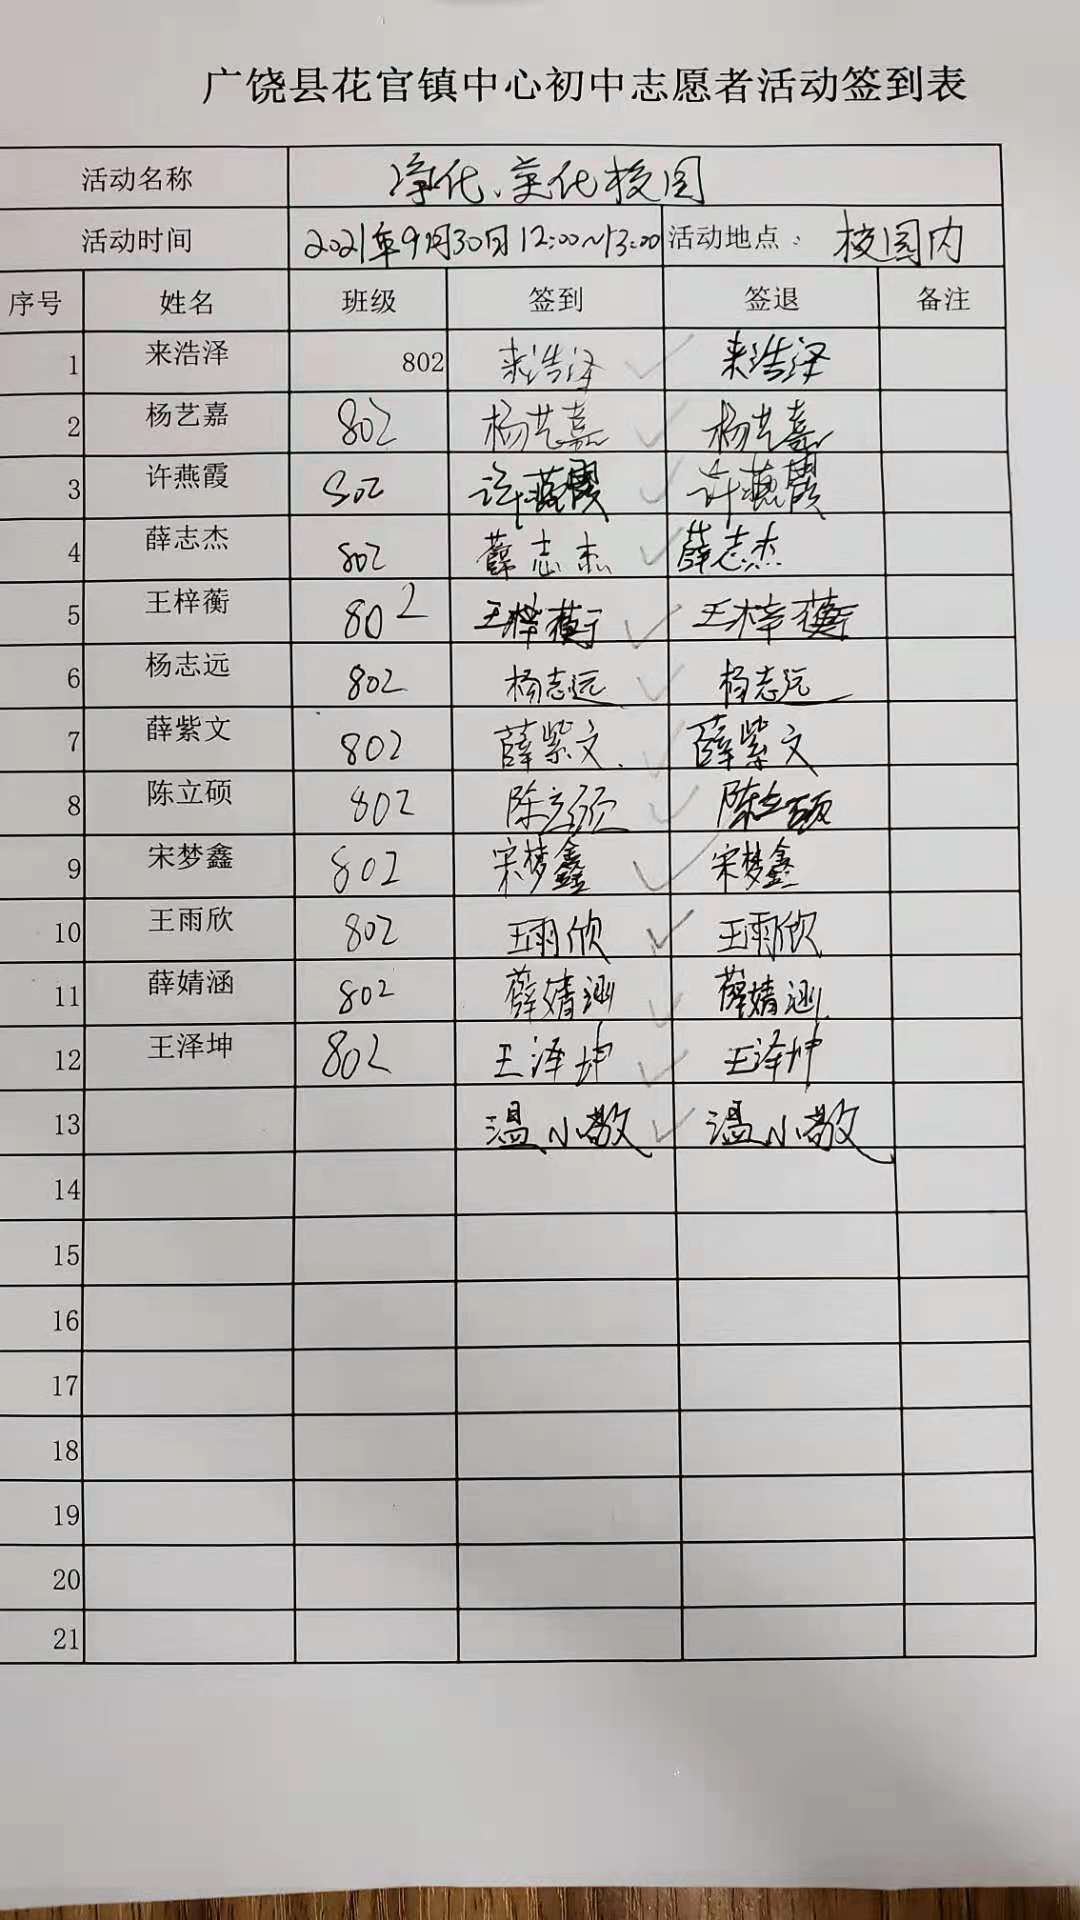 广饶县花官镇中心初中志愿者活动签到表
活动名称 净化、美化校园
活动时间 2021年9月30日12:00~13:00 活动地点: 校园内
序号 姓名 班级 签到 签退 备注
1 来浩泽 802 来浩泽 ✓ 来浩泽
2 杨艺嘉 802 杨艺嘉 ✓ 杨艺嘉
3 许燕霞 802 许燕霞 ✓ 许燕霞
4 薛志杰 802 薛志杰 ✓ 薛志杰
5 王梓蘅 802 王梓蘅 ✓ 王梓蘅
6 杨志远 802 杨志远 ✓ 杨志远
7 薛紫文 802 薛紫文. ✓ 薛紫文
8 陈立硕 802 陈立硕 ✓ 陈立硕
9 宋梦鑫 802 宋梦鑫 ✓ 宋梦鑫
10 王雨欣 802 王雨欣 ✓ 王雨欣
11 薛婧涵 802 薛婧涵 ✓ 薛婧涵
12 王泽坤 802 王泽坤 ✓ 王泽坤
13 温小敬 ✓ 温小敬
14
15
16
17
18
19
20
21